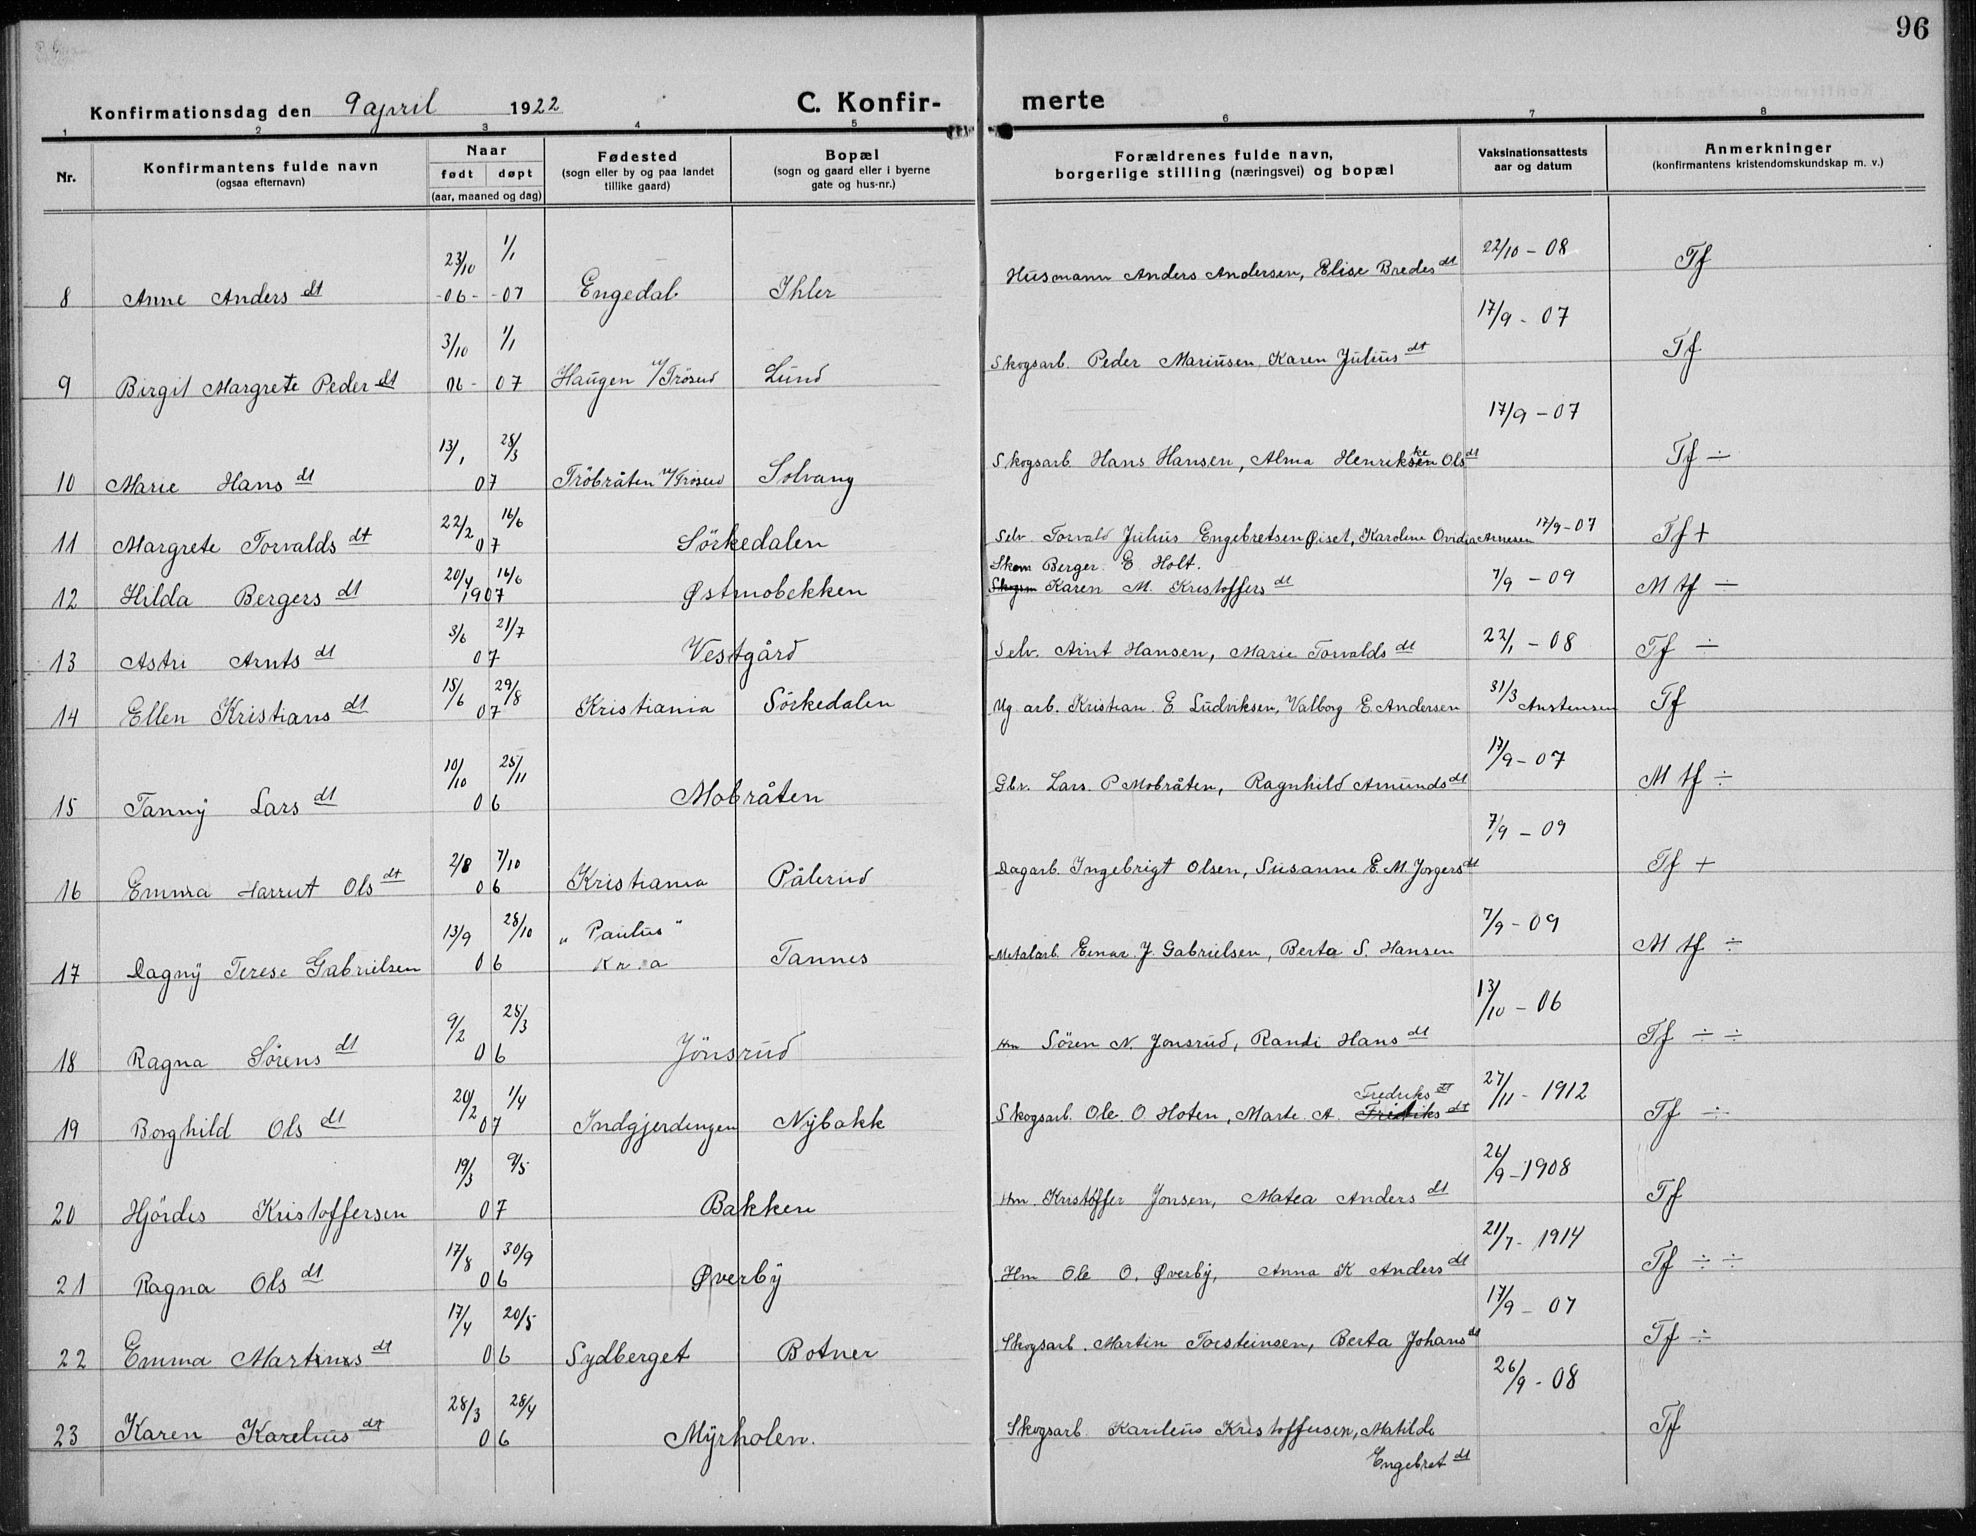 96
Konfirmationsdag den 9 april 1922 C. Konfir- merte
1 2 3 4 5 6 7 8
Nr.
Konfirmantens fulde navn
(ogsaa efternavn)
Naar
født døpt
(aar, maaned og dag)
Fødested
(sogn eller by og paa landet
tillike gaard)
Bopæl
(sogn og gaard eller i byerne
gate og hus-nr.)
Forældrenes fulde navn,
borgerlige stilling (næringsvei) og bopæl
Vaksinationsattests
aar og datum
Anmerkninger
(konfirmantens kristendomskundskap m. v.)
23/10 1/1 22/10 - 08
8 Anne Anders dt -06- -07 Engedal Ihler Husmann Anders Andersen, Elise Bredes dt Tf
3/10 1/1 17/9 - 07
9 Birgit Margrete Peder dt 06- 07 Haugen v/Trösud Lund Skogsarb. Peder Mariusen, Karen Julius dt Tf
13/1 28/3 17/9 - 07
10 Marie Hans dt 07 Tröbråten v/Trösud Solvang Skogsarb. Hans Hansen, Alma Henrikke Ols dt Tf ÷
22/2 16/6 17/9 - 07
11 Margrete Torvalds dt 07 Sörkedalen Selv. Torvald Julius Engebretsen Øiset, Karoline Ovidia Arnesen Tf +
20/4 16/6 Skom Berger. E Holt.
12 Hilda Bergers dt 1907 Østmobekken Skogsm Karen M. Kristoffers dt 7/9 - 09 M tf ÷
3/6 21/7 22/1 - 08
13 Astri Arnts dt 07 Vestgård Selv. Arnt Hansen, Marie Torvalds dt Tf ÷
15/6 29/8 31/3
14 Ellen Kristians dt 07 Kristiania Sörkedalen Ug arb. Kristian. E. Ludviksen, Valborg E. Andersen Anstensen Tf
10/10 25/11 17/9 - 07
15 Fanny Lars dt 06 Mobråten Gbr. Lars. P Mobråten, Ragnhild Amunds dt M tf ÷
2/8 7/10 7/9 - 09
16 Emma Harriet Ols dt 06 Kristiania Pålerud Dagarb. Ingebrigt Olsen, Susanne E. M. Jörgers dt Tf +
13/9 28/10 „ Paulus " 7/9 - 09
17 Dagny Terese Gabrielsen 06 Kr.a Tannes Metalarb. Einar. J. Gabrielsen, Berta S. Hansen M tf ÷
9/2 25/3 13/10 - 06
18 Ragna Sörens dt 06 Jönsrud Hm Sören N. Jonsrud, Randi Hans dt Tf ÷ ÷
20/2 1/4 Fredriks dt 27/11 - 1912
19 Borghild Ols dt 07 Indgjerdingen Nybakk Skogsarb. Ole. O. Hoten, Marte. A. Fredriks dt Tf ÷
19/3 9/5 26/9 - 1908
20 Hjördis Kristoffersen 07 Bakken Hm. Kristoffer Jonsen, Matea Anders dt Tf
17/8 30/9 21/7 - 1914
21 Ragna Ols dt 06 Øverby Hm Ole O. Øverby, Anna K Anders dt Tf ÷ ÷
17/4 20/5 17/9 - 07
22 Emma Martins dt 06 Sydberget Botner Skogsarb. Martin Torsteinsen, Berta Johans dt Tf ÷
28/3 28/4 26/9 - 08
23 Karen Karelius dt 06 Myrholen. Skogsarb. Karelius Kristoffersen, Matilde Tf
Engebret dt